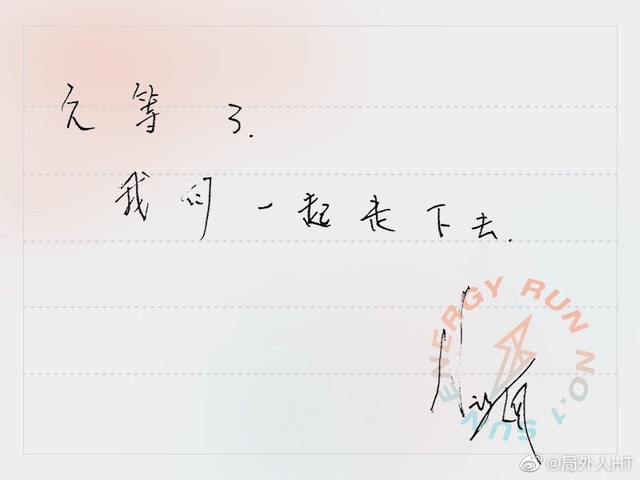 久等了.
我们一起走下去.
ENERGY RUN NO.1 SUN
@局外人HT